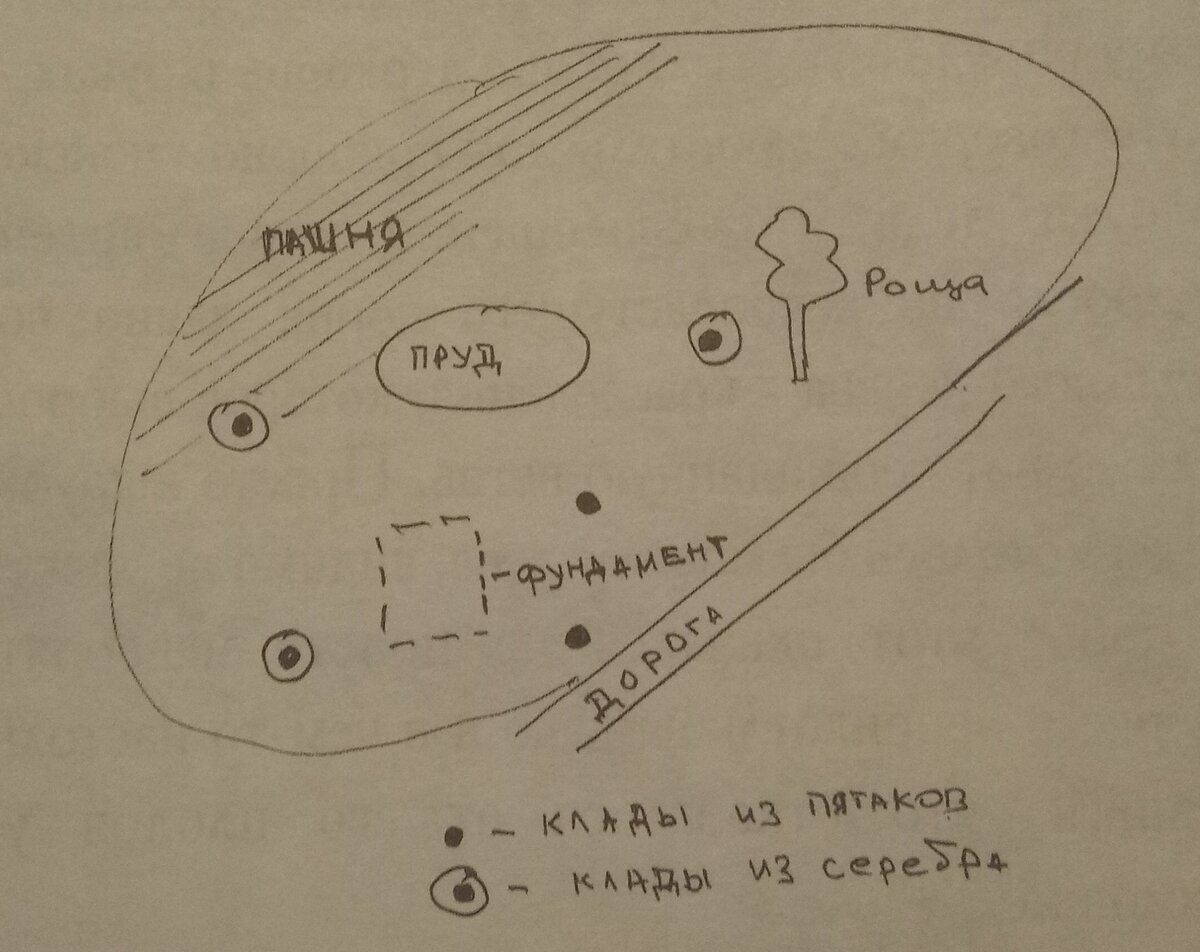 ПАШНЯ
Роща
ПРУД
- ФУНДАМЕНТ
ДОРОГА
- КЛАДЫ ИЗ ПЯТАКОВ
- КЛАДЫ ИЗ серебра